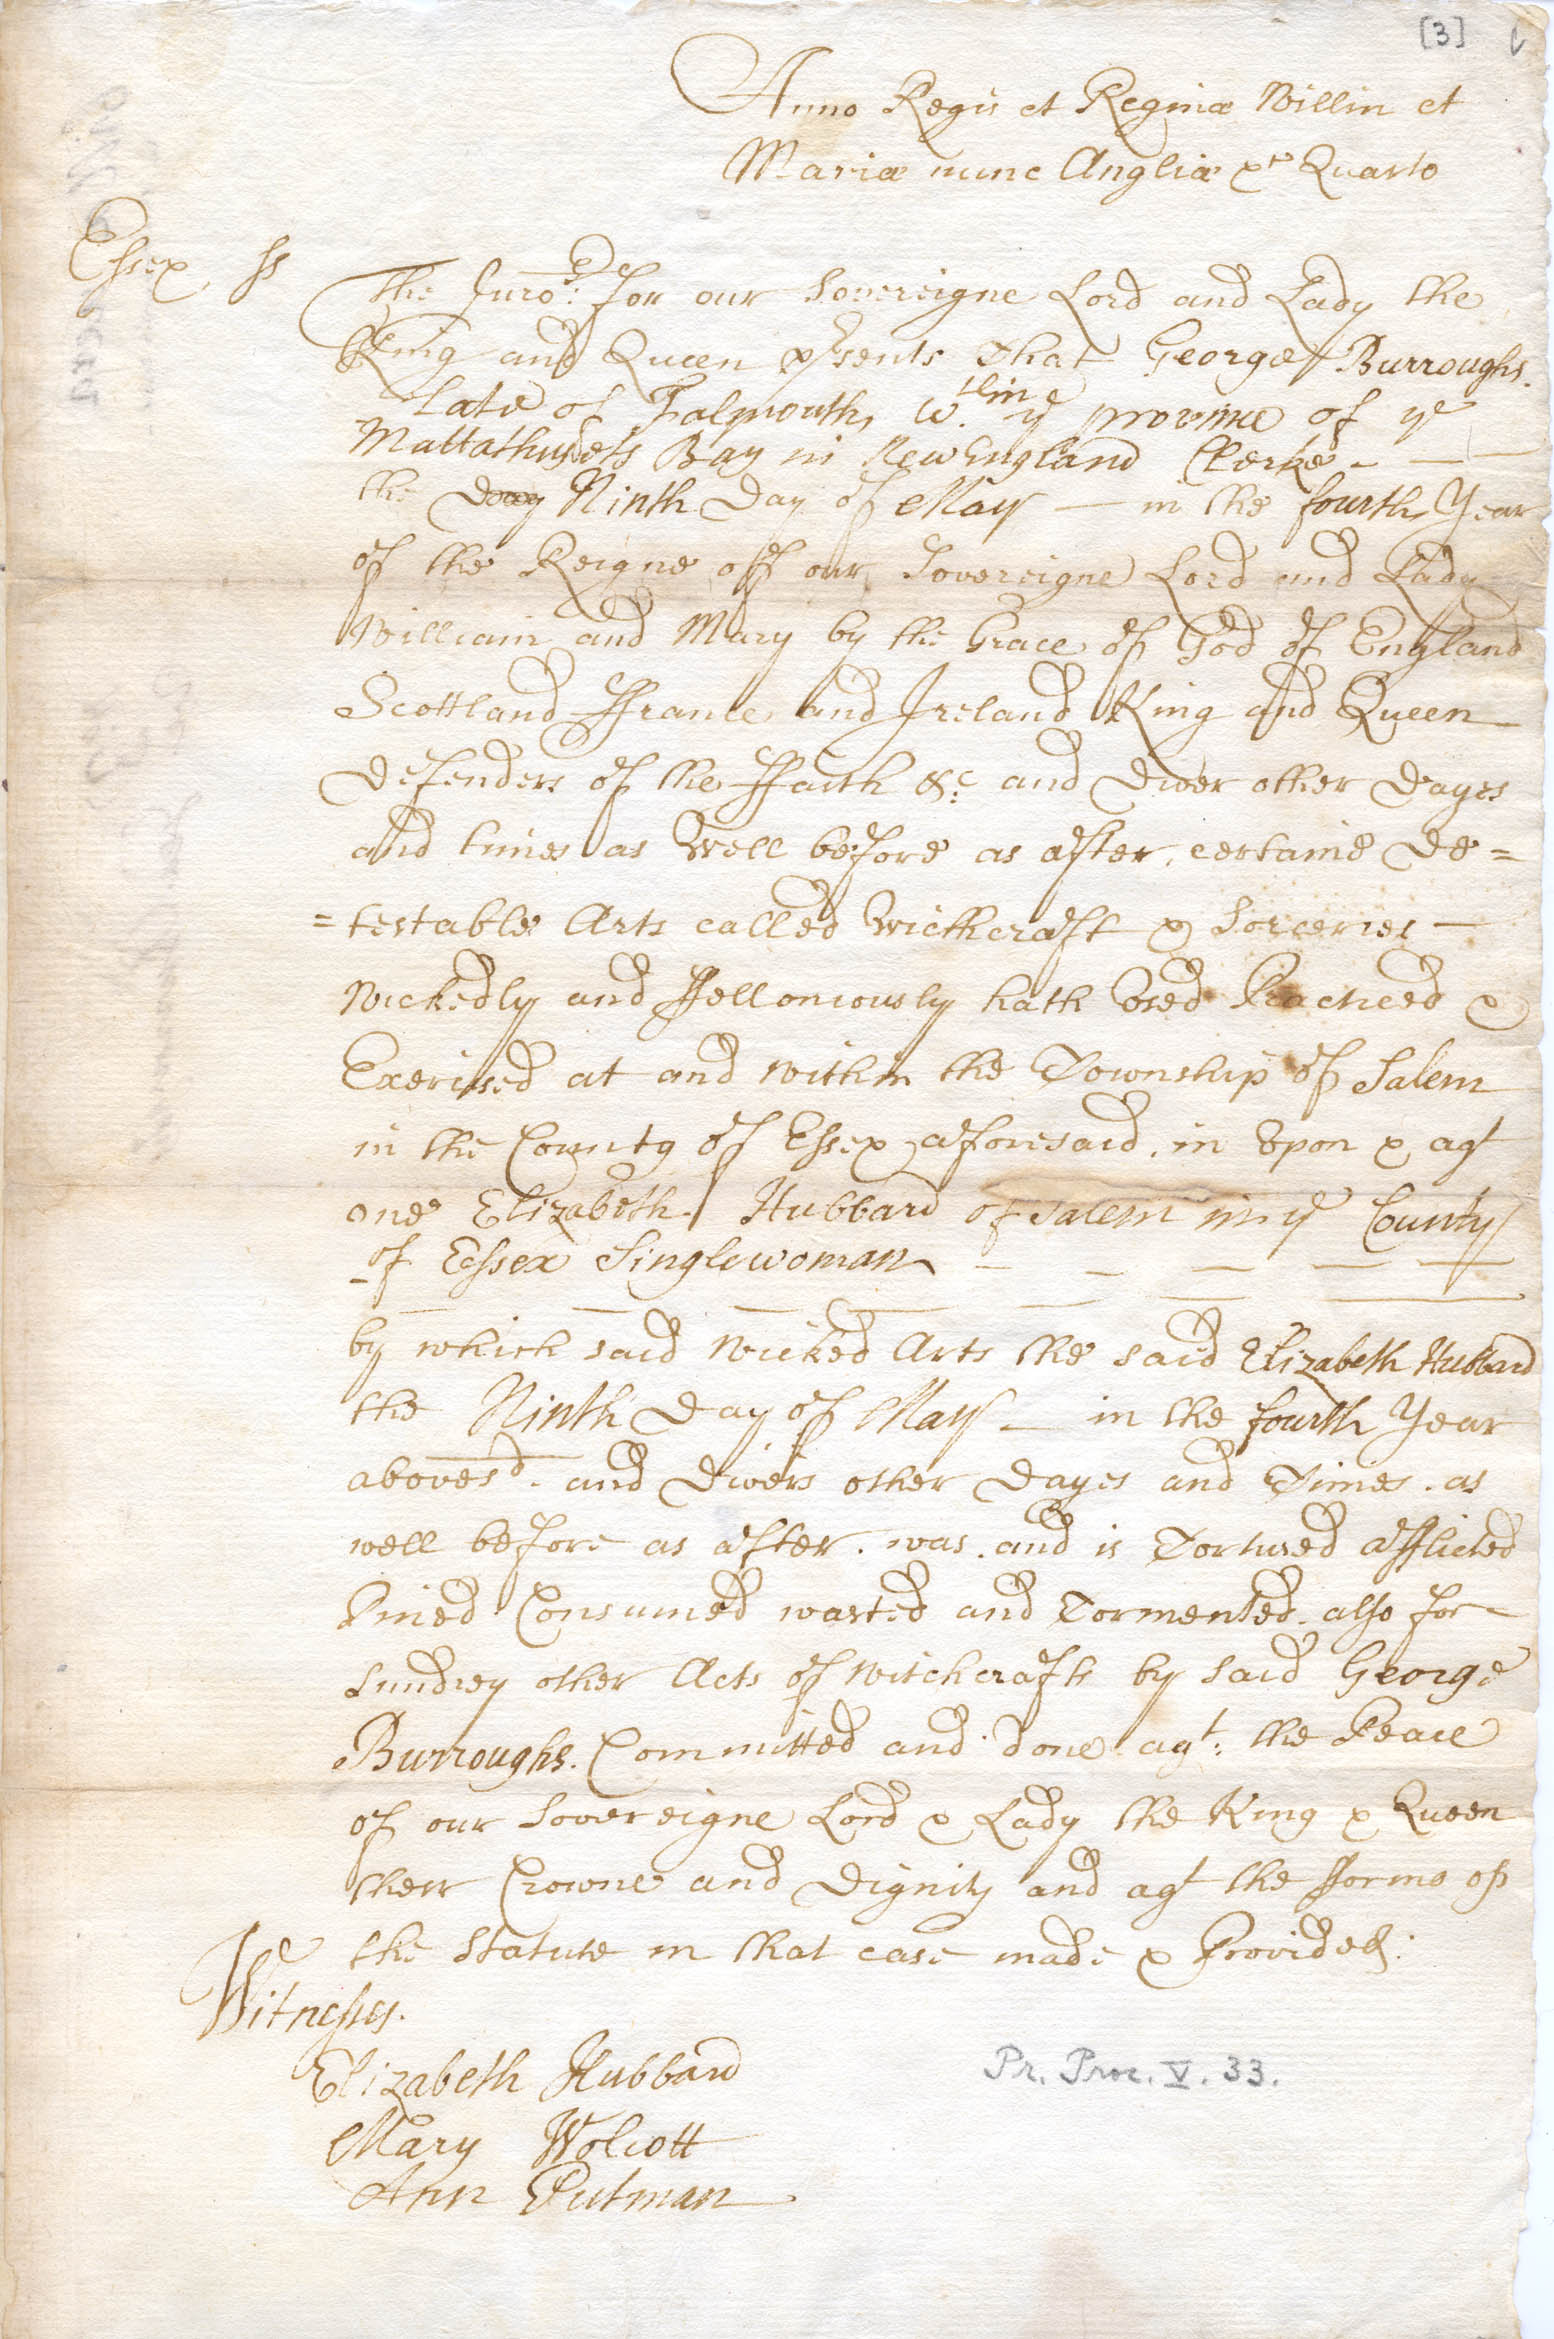 [3]
Anno Regis et Reginæ Willm et
Mariæ nunc Angliæ &c Quarto
Essex ss
The Juro.rs for our Sovereigne Lord and Lady the
King and Queen p'sents That George Burroughs.
Late of Falmouth, wthin ye province of ye
Mattathusets Bay in New England Clerke - — —
the Day Ninth Day of May — in the fourth Year
of the Reigne off our Sovereigne Lord and Lady
William and Mary by the Grace of God of England
Scottland ffrance and Ireland King and Queen
Defenders of the ffaith &c: and Diver other Dayes
and times as Well before as after, certaine De=
=testable Arts called Witchcraft & Sorceries —
Wickedly and ffelloniously hath Vsed Practiced &
Exercised at and within the Township of Salem
in the County of Essex aforesaid, in Vpon & agt
one Elizabeth Hubbard of Salem in ye County
of Essex Singlewoman — — — — —
by which said Wicked Arts the said Elizabeth Hubbard
the Ninth Day of May — in the fourth Year
abovesd. and Divers other Dayes and Times. as
well before as after. was. and is Tortured afflicted
Pined Consumed wasted and Tormented. also for
sundrey other Acts of Witchcrafts by said George
Burroughs. Committed and done agt: the Peace
of our Sovereigne Lord & Lady the King & Queen
their Crowne and Dignity and agt the fforme of
the Statute in that case made & Provided:
Witnesses.
Elizabeth Hubbard
Mary Wolcott
Ann Putman
Pr. Proc. V. 33.